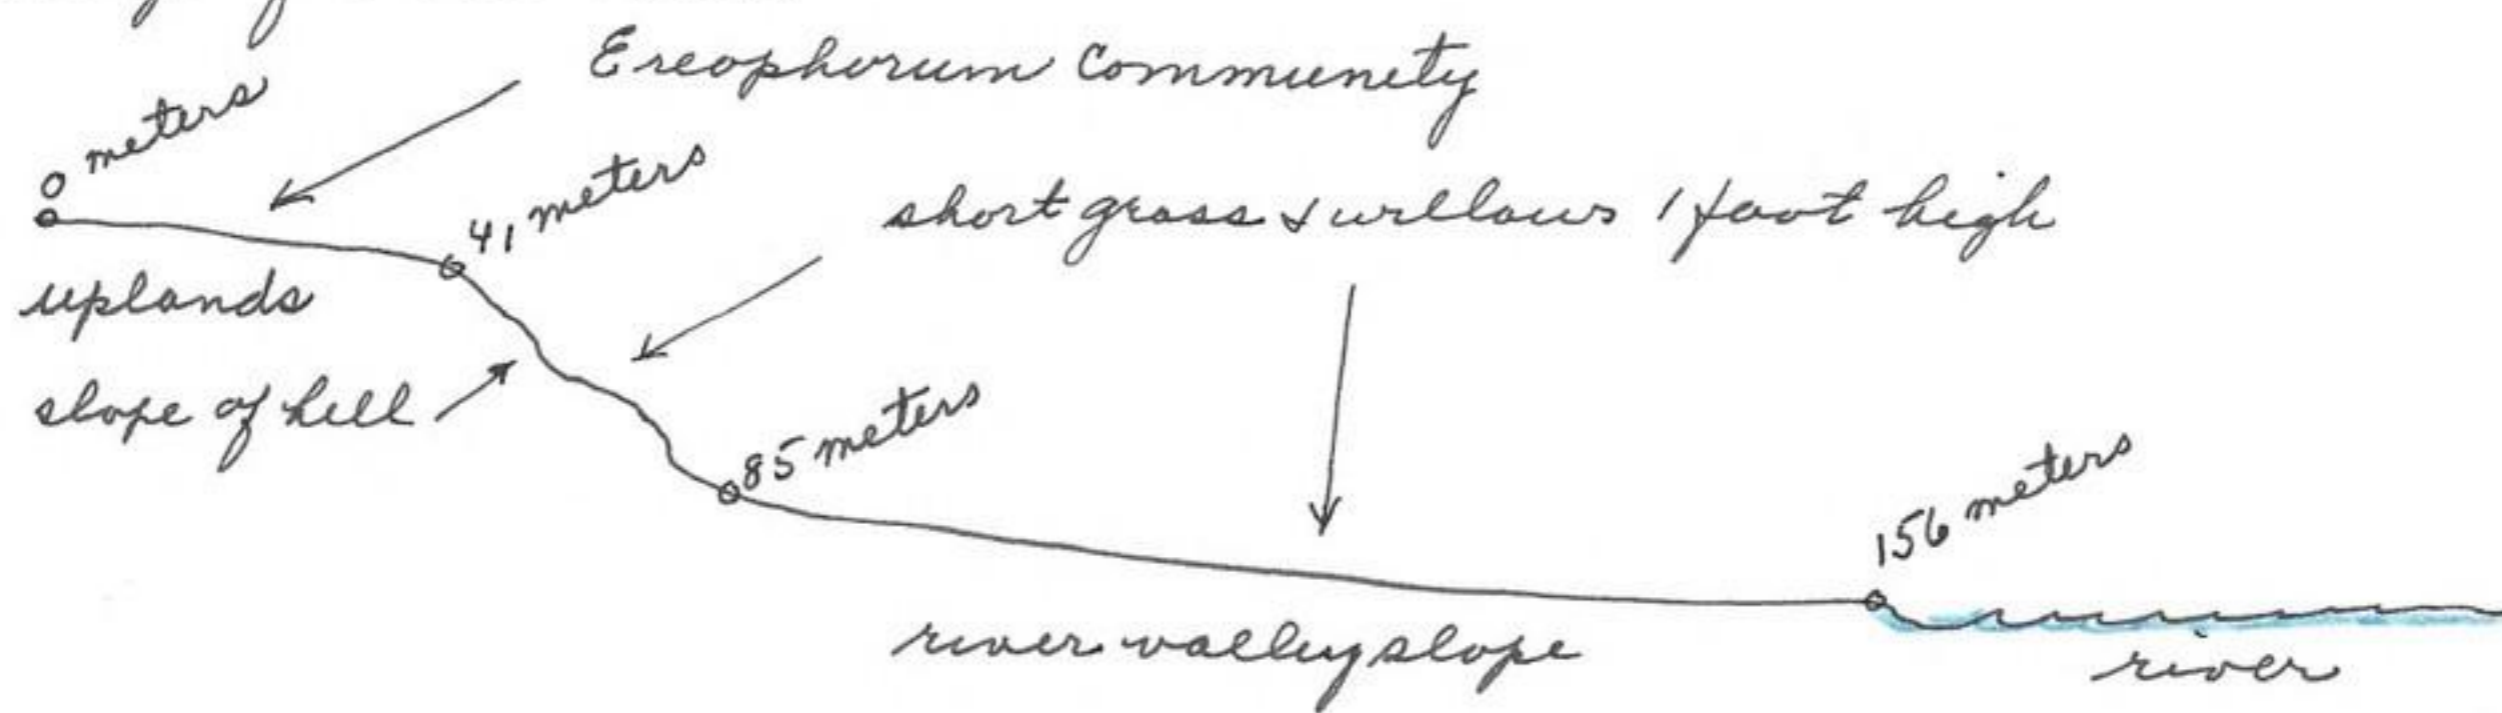 Ereophorum Community
0 meters
41 meters
short grass & willows 1 foot high
uplands
slope of hill
85 meters
156 meters
river valley slope
river